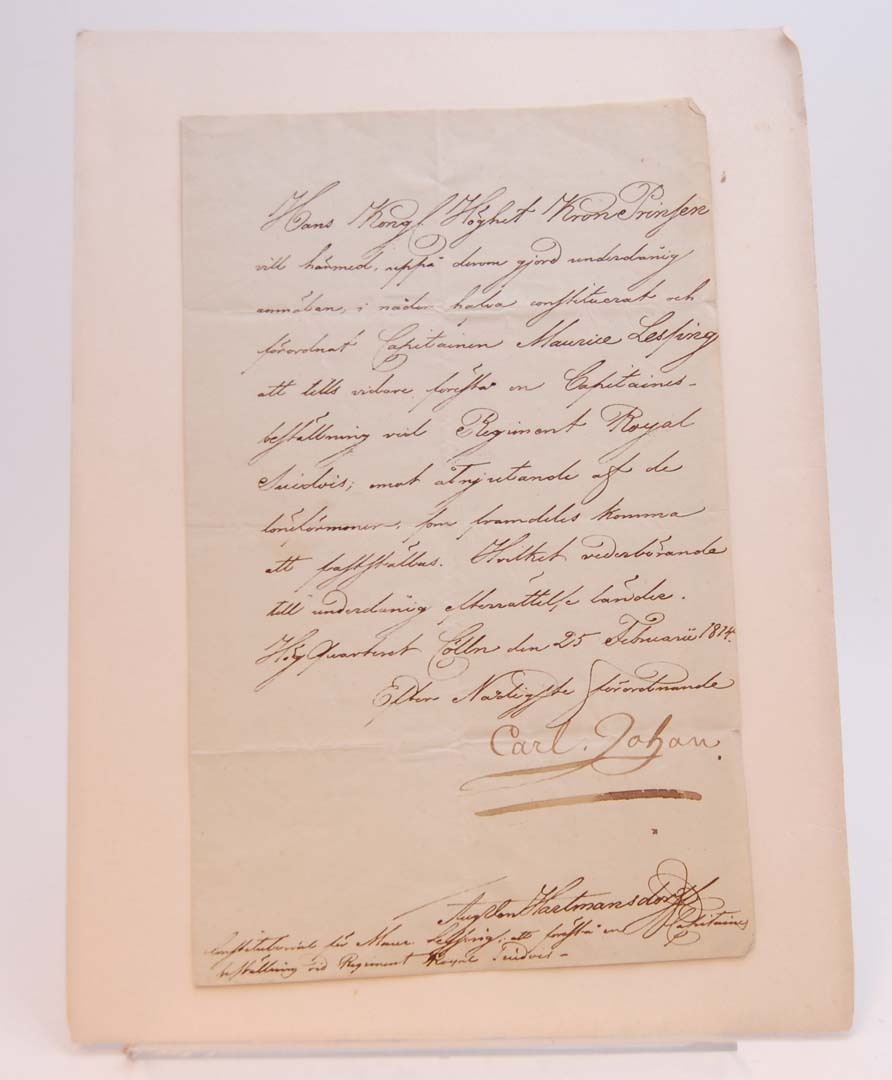 Hans Kongl. Höghet Kron Prinsen
vill härmed, uppå derom gjord underdånig
anmälan, i nåder hafva constituerat och
förordnat Capitainen Maurice Lessing
att tills vidare förestå en Capitaines-
beställning vid Regiment Royal
Suédois; emot åtnjutande af de
löneförmoner, som framdeles komma
att fastställas. Hvilket vederbörande
till underdånig efterrättelse länder.
Hög Quarteret Cölln den 25 Februarii 1814.
Efter Nådigste förordnande
Carl. Johan.
Aug. von Hartmansdorff
Constitutorial för Maur. Lessing, att förestå en Capitaines
beställning vid Regiment Royal Suédois –